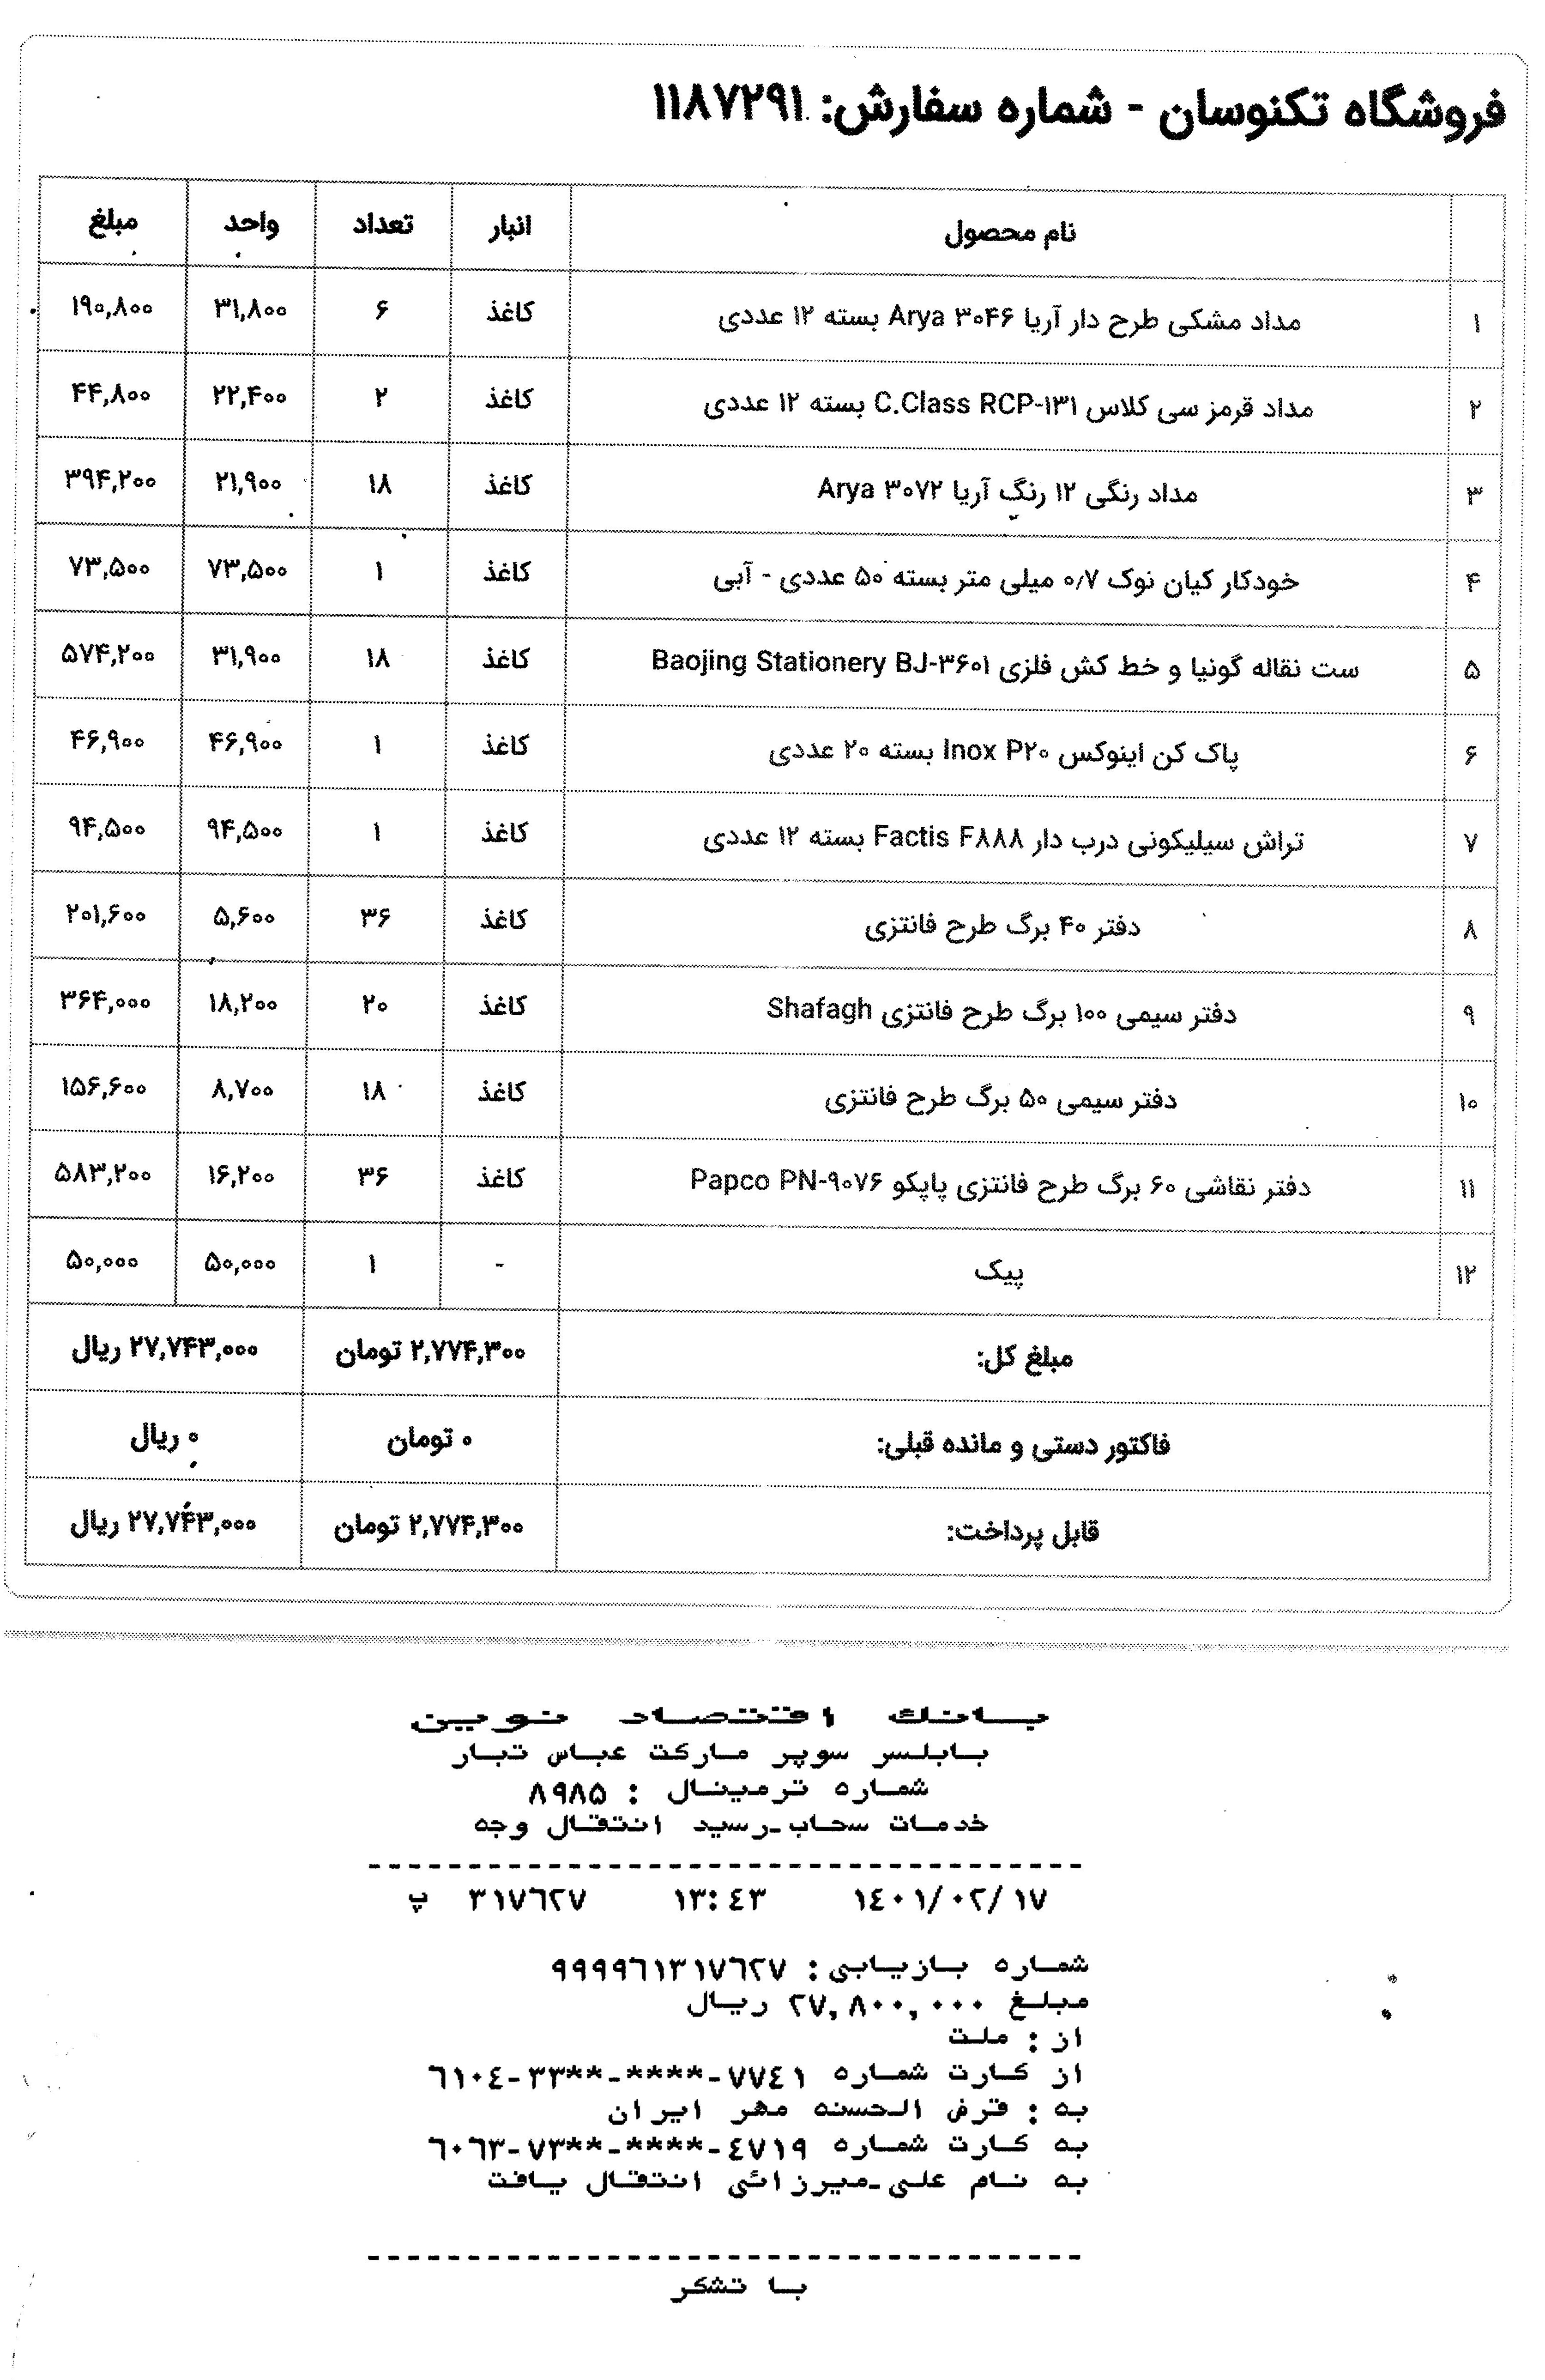 فروشگاه تکنوسان - شماره سفارش: ۱۱۸۷۲۹۱
نام محصول انبار تعداد واحد مبلغ
۱ مداد مشکی طرح دار آریا Arya ۳۰۴۶ بسته ۱۲ عددی کاغذ ۶ ۳۱,۸۰۰ ۱۹۰,۸۰۰
۲ مداد قرمز سی کلاس C.Class RCP-۱۳۱ بسته ۱۲ عددی کاغذ ۲ ۲۲,۴۰۰ ۴۴,۸۰۰
۳ مداد رنگی ۱۲ رنگ آریا Arya ۳۰۷۲ کاغذ ۱۸ ۲۱,۹۰۰ ۳۹۴,۲۰۰
۴ خودکار کیان نوک ۰/۷ میلی متر بسته ۵۰ عددی - آبی کاغذ ۱ ۷۳,۵۰۰ ۷۳,۵۰۰
۵ ست نقاله گونیا و خط کش فلزی Baojing Stationery BJ-۳۶۰۱ کاغذ ۱۸ ۳۱,۹۰۰ ۵۷۴,۲۰۰
۶ پاک کن اینوکس Inox P۲۰ بسته ۲۰ عددی کاغذ ۱ ۴۶,۹۰۰ ۴۶,۹۰۰
۷ تراش سیلیکونی درب دار Factis F۸۸۸ بسته ۱۲ عددی کاغذ ۱ ۹۴,۵۰۰ ۹۴,۵۰۰
۸ دفتر ۴۰ برگ طرح فانتزی کاغذ ۳۶ ۵,۶۰۰ ۲۰۱,۶۰۰
۹ دفتر سیمی ۱۰۰ برگ طرح فانتزی Shafagh کاغذ ۲۰ ۱۸,۲۰۰ ۳۶۴,۰۰۰
۱۰ دفتر سیمی ۵۰ برگ طرح فانتزی کاغذ ۱۸ ۸,۷۰۰ ۱۵۶,۶۰۰
۱۱ دفتر نقاشی ۶۰ برگ طرح فانتزی پاپکو Papco PN-۹۰۷۶ کاغذ ۳۶ ۱۶,۲۰۰ ۵۸۳,۲۰۰
۱۲ پیک - ۱ ۵۰,۰۰۰ ۵۰,۰۰۰
مبلغ کل: ۲,۷۷۴,۳۰۰ تومان ۲۷,۷۴۳,۰۰۰ ریال
فاکتور دستی و مانده قبلی: ۰ تومان ۰ ریال
قابل پرداخت: ۲,۷۷۴,۳۰۰ تومان ۲۷,۷۴۳,۰۰۰ ریال
بانک اقتصاد نوین
بابلسر سوپر مارکت عباس تبار
شماره ترمینال : ۸۹۸۵
خدمات سحاب-رسید انتقال وجه
۱۴۰۱/۰۲/۱۷ ۱۳:۴۳ ۳۱۷۶۲۷ پ
شماره بازیابی: ۹۹۹۹۶۱۳۱۷۶۲۷
مبلغ ۲۷,۸۰۰,۰۰۰ ریال
از : ملت
از کارت شماره ۶۱۰۴-۳۳**-****-۷۷۴۱
به : قرض الحسنه مهر ایران
به کارت شماره ۶۰۶۳-۷۳**-****-۴۷۱۹
به نام علی-میرزائی انتقال یافت
با تشکر